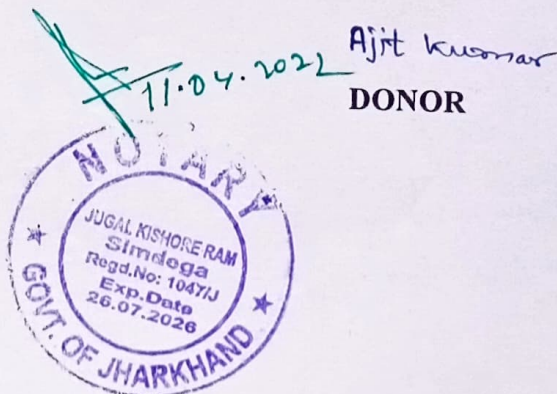 11.04.2022
Ajit Kumar
DONOR
NOTARY
JUGAL KISHORE RAM
Simdega
Regd.No: 1047/J
Exp.Date
26.07.2026
★ GOVT. OF JHARKHAND ★